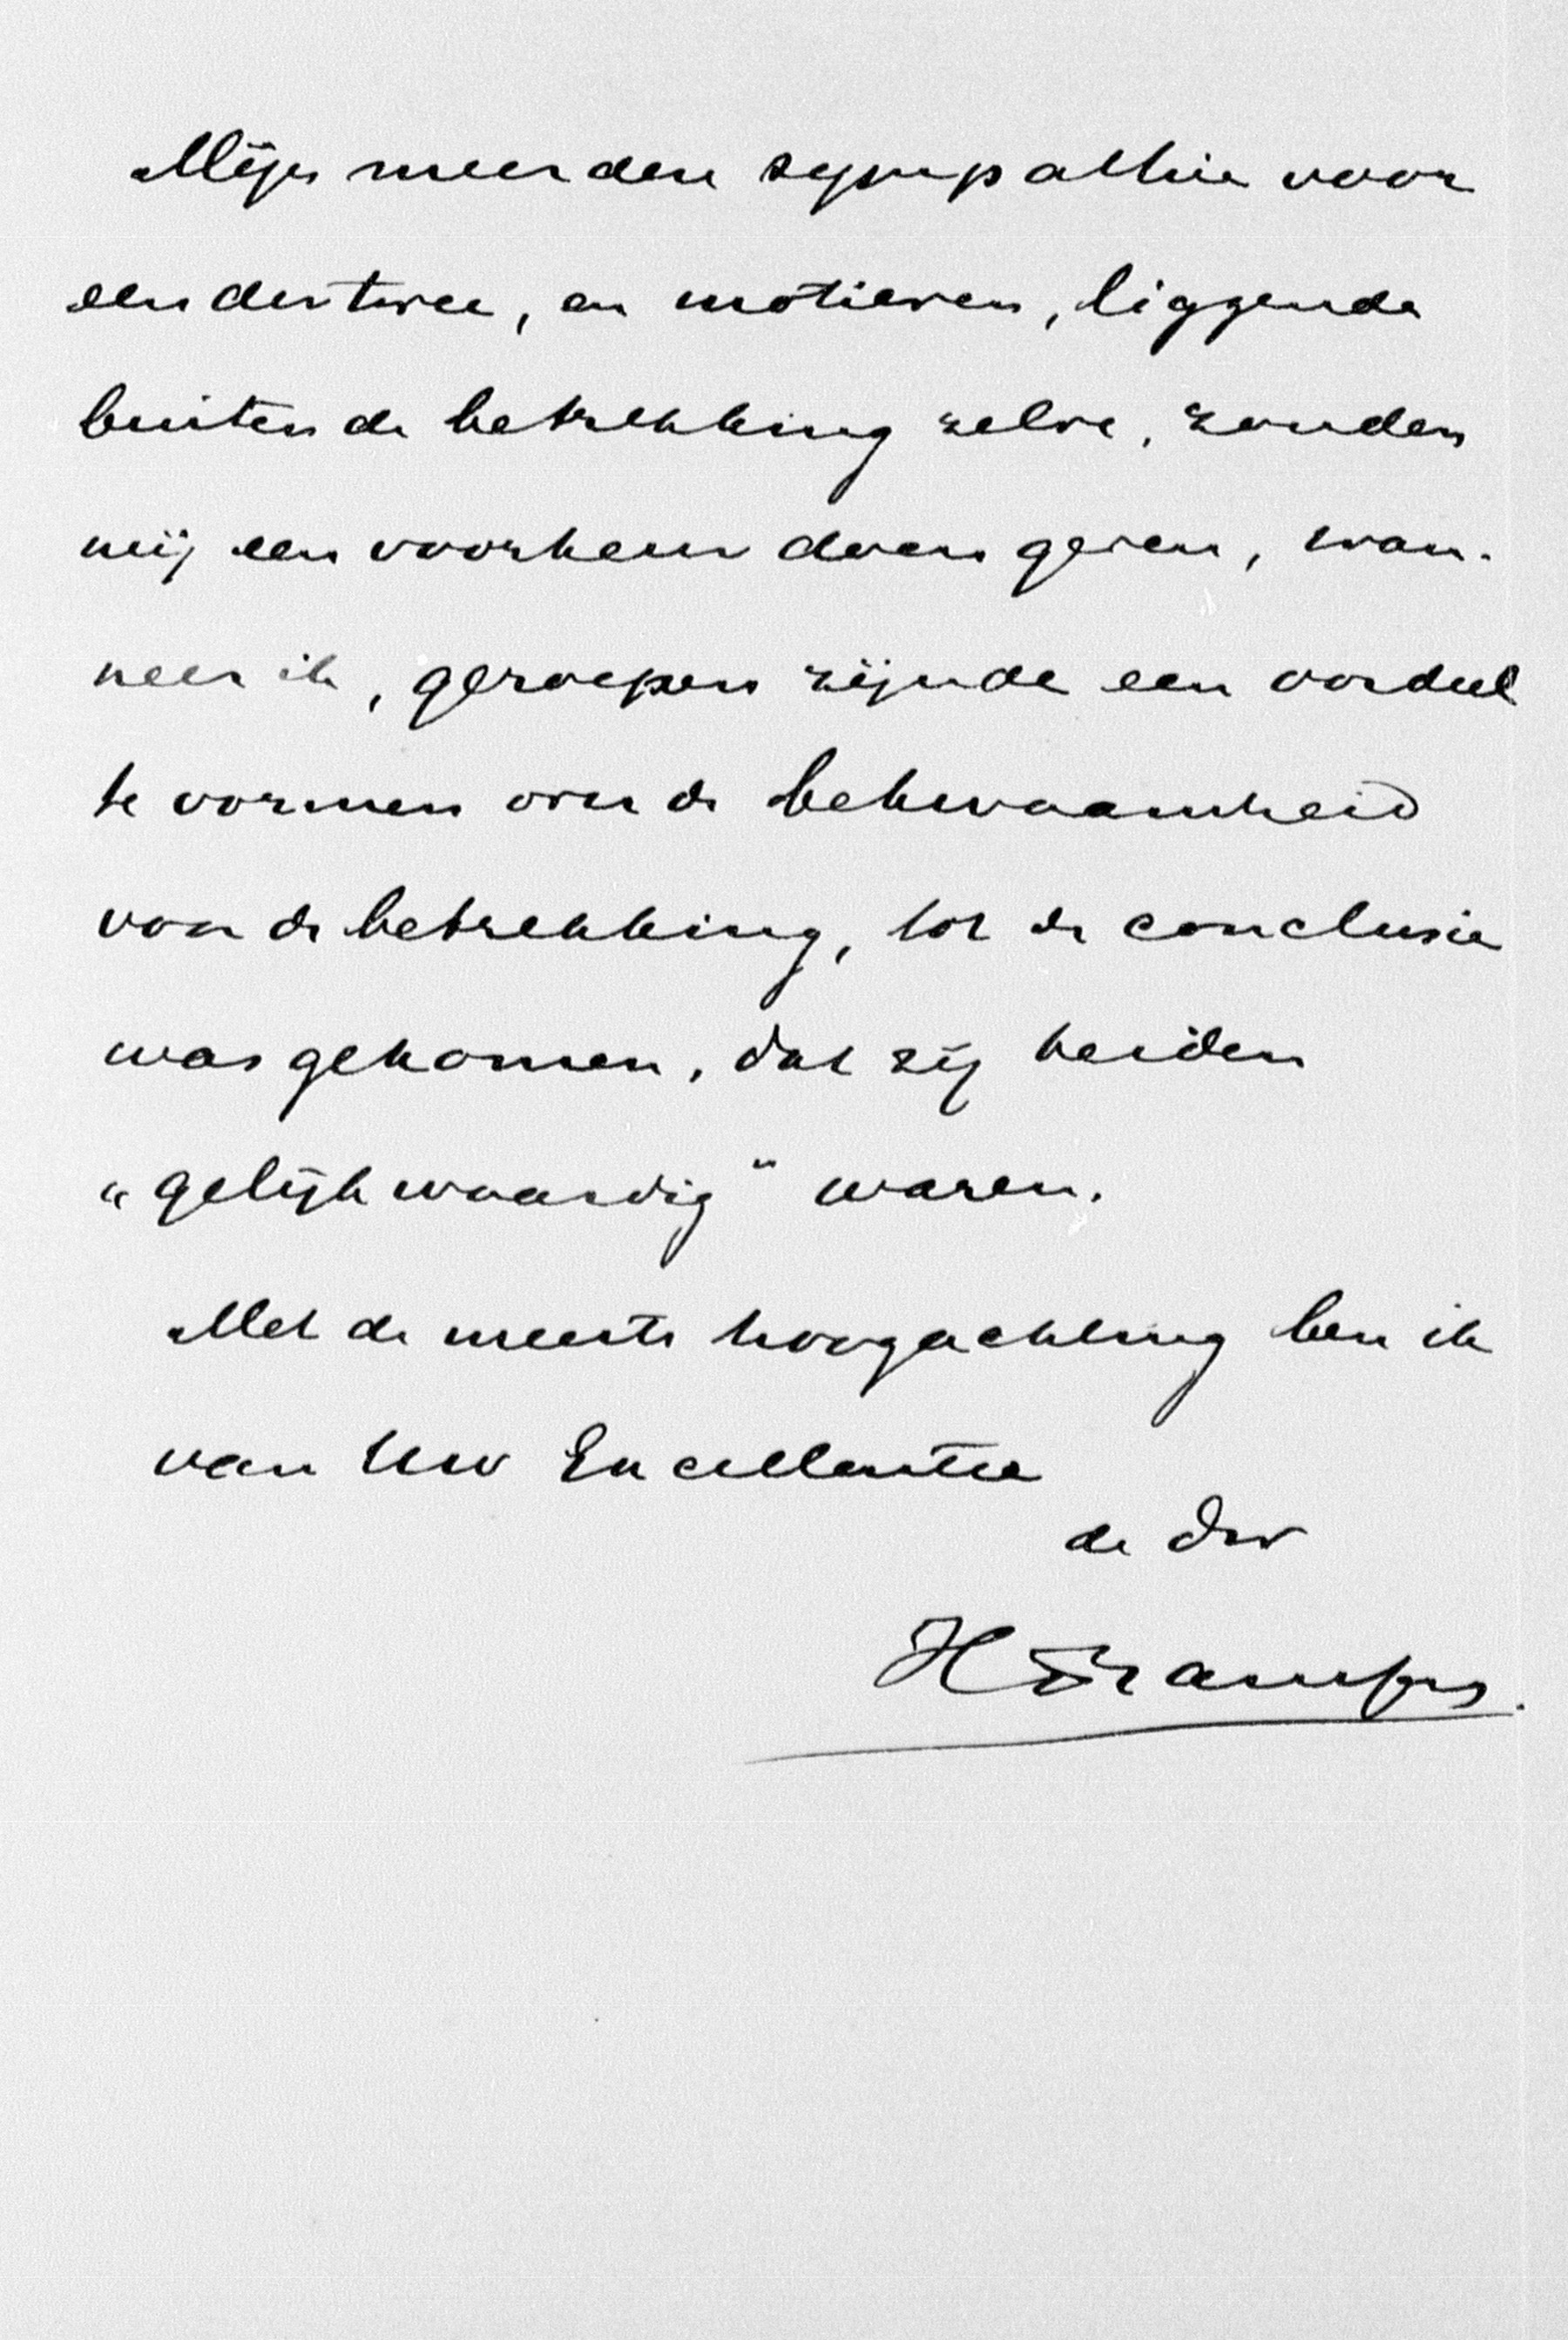 Mijn meerdere sympathie voor
een der twee, en motieven, liggende
buiten de betrekking zelve, zouden
mij een voorkeur doen geven, wan-
neer ik, geroepen zijnde een oordeel
te vormen over de bekwaamheid
voor de betrekking, tot de conclusie
was gekomen, dat zij beiden
„gelijkwaardig" waren.
Met de meeste hoogachting ben ik
van Uw Excellentie
de dw